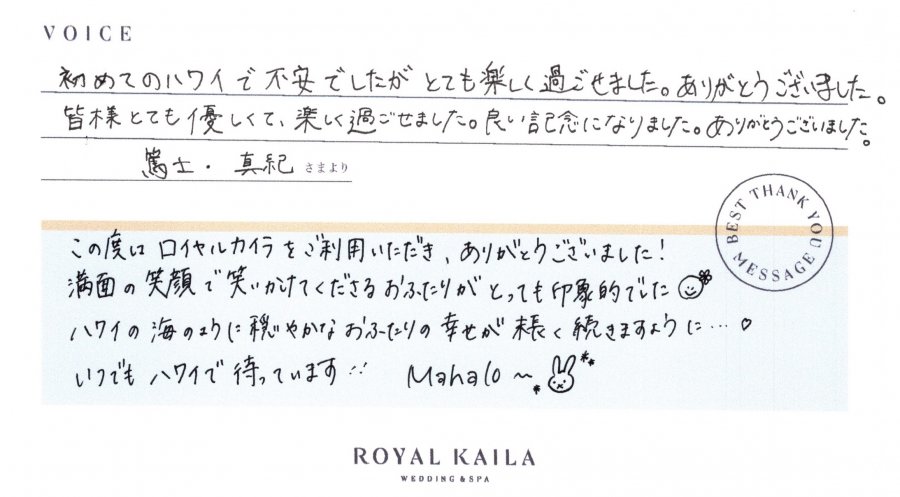 VOICE
初めてのハワイで不安でしたがとても楽しく過ごせました。ありがとうございました。
皆様とても優しくて、楽しく過ごせました。良い記念になりました。ありがとうございました。
篤士・真紀さまより
BEST THANK YOU MESSAGE
この度は ロイヤルカイラをご利用いただき、ありがとうございました!
満面の笑顔で笑いかけてくださるおふたりがとっても印象的でした
ハワイの海のように穏やかなおふたりの幸せが末長く続きますように…♡
いつでもハワイで待っています!! Mahalo~
ROYAL KAILA
WEDDING & SPA